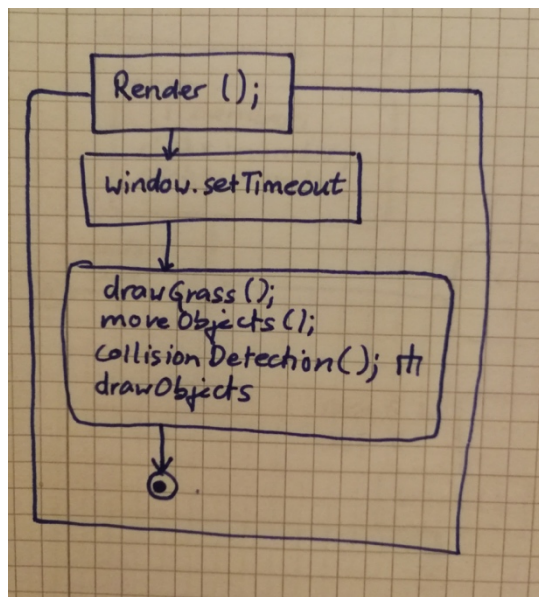 Render ();
window.setTimeout
drawGrass();
moveObjects();
collisionDetection();
drawObjects